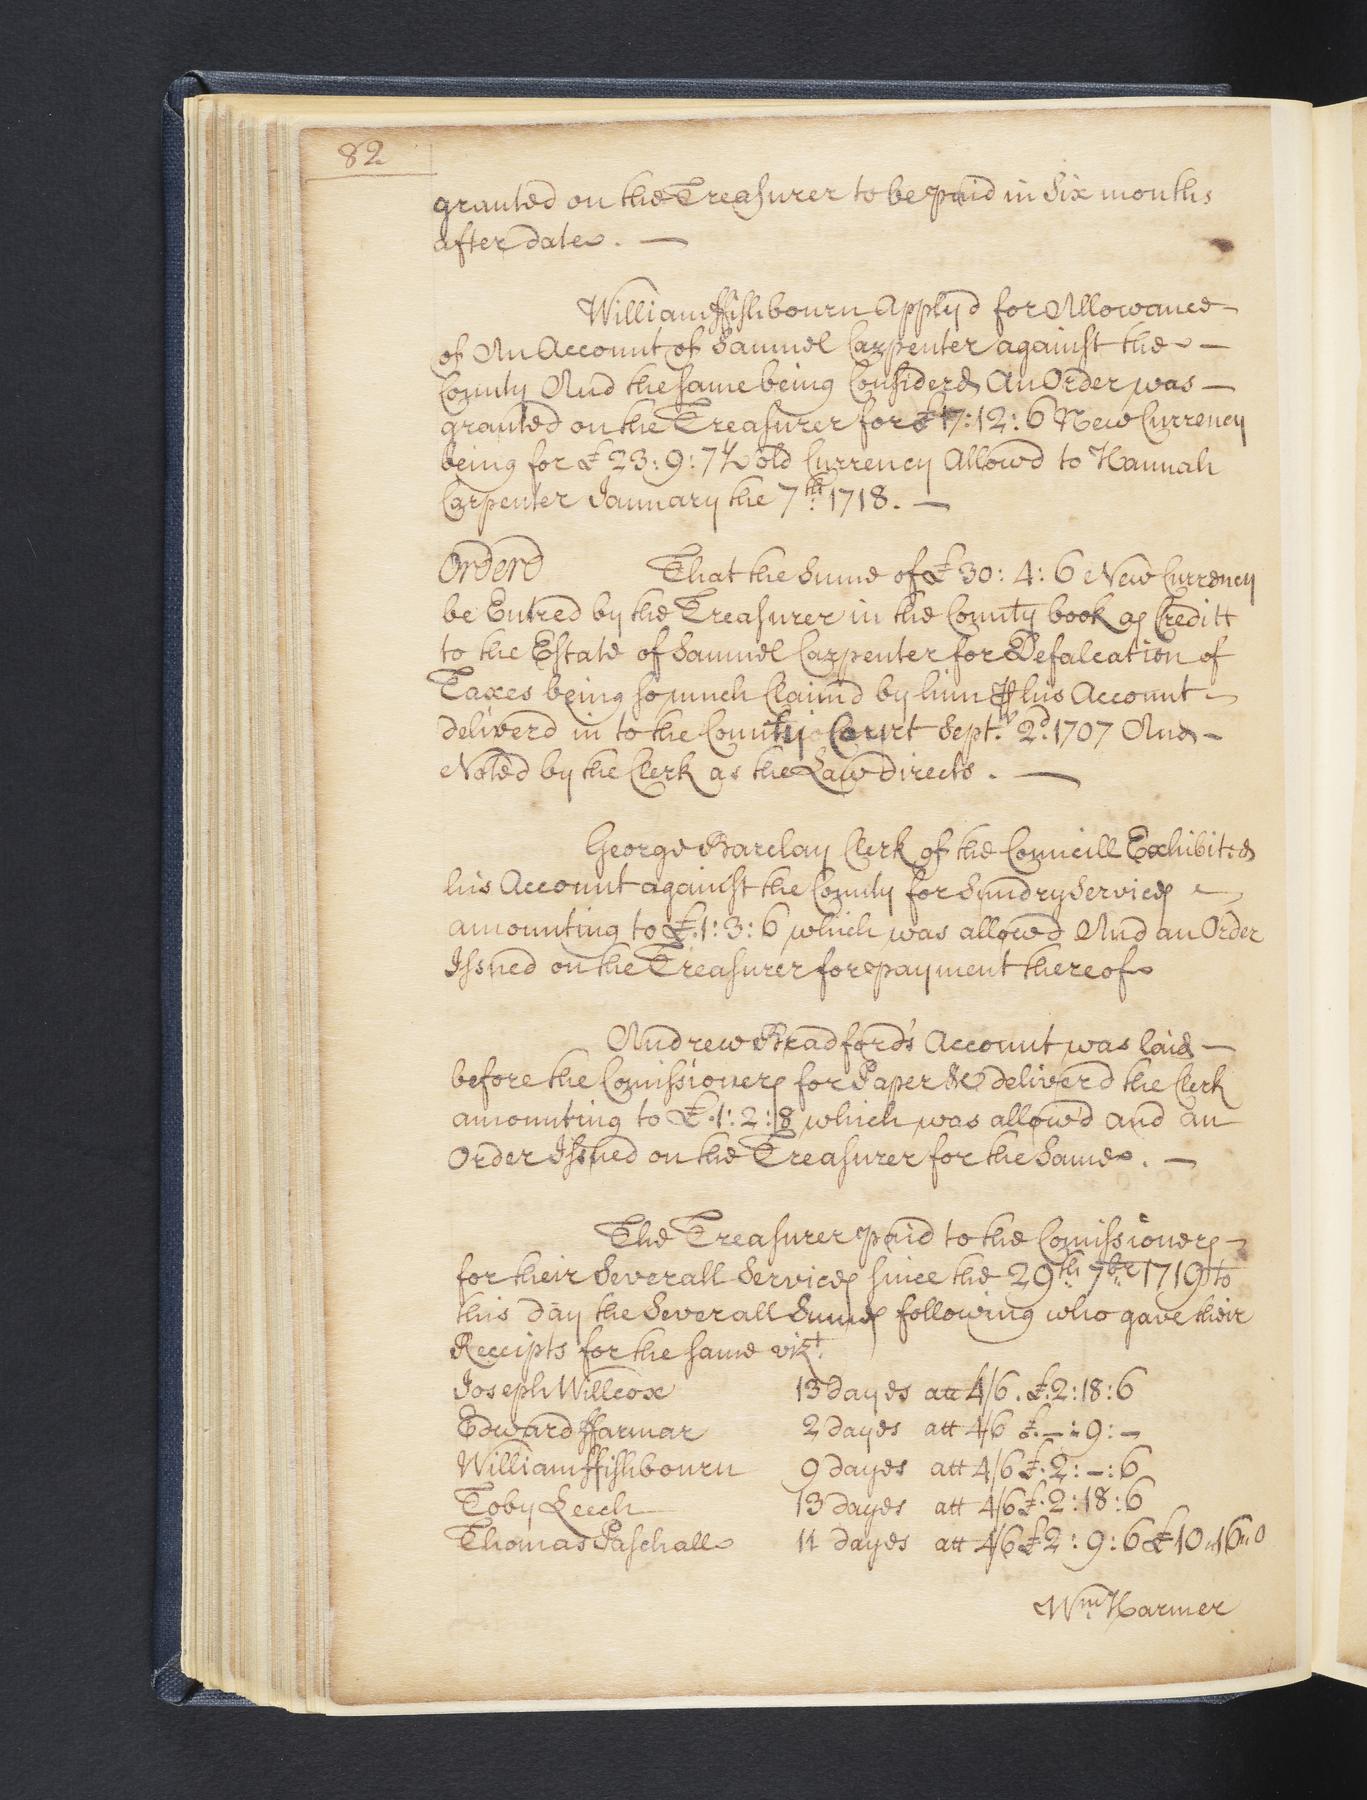 82
granted on the Treasurer to be paid in Six months
after date. —
William ffishbourn Apply'd for Allowance —
of An Account of Samuel Carpenter against the —
County And the same being Considerd An Order was —
granted on the Treasurer for £17:12:6 New Currency
being for £23:9:7½ old Currency Allowd to Hannah
Carpenter January the 7th 1718. —
Orderd That the Sume of £30:4:6 New Currency
be Entred by the Treasurer in the County book as Creditt
to the Estate of Samuel Carpenter for Defalcation of
Taxes being so much Claim'd by him ⅌ his Account —
deliverd in to the County Court Septr. 2d. 1707 And —
Noted by the Clerk as the Law directs. —
George Barclay Clerk of the Councill Exhibited
his Account against the County for Sundry Services
amounting to £.1:3:6 which was allowd And an Order
Issued on the Treasurer for payment thereof
Andrew Bradford's Account was laid —
before the Comissioners for Paper &c deliverd the Clerk
amounting to £.1:2:8 which was allow'd and an
Order Issued on the Treasurer for the Same. —
The Treasurer paid to the Comissioners —
for their Severall Services since the 29th 7br 1719 to
this day the Severall Sumes following who gave their
Receipts for the same vizt.
Joseph Willcox 13 dayes att 4/6. £.2:18:6
Edward ffarmar 2 dayes att 4/6 £.—:9:—
William ffishbourn 9 dayes att 4/6 £.2:—:6
Toby Leech 13 dayes att 4/6 £.2:18:6
Thomas Paschall 11 dayes att 4/6 £2:9:6 £10"16"0
Wm. Harmer